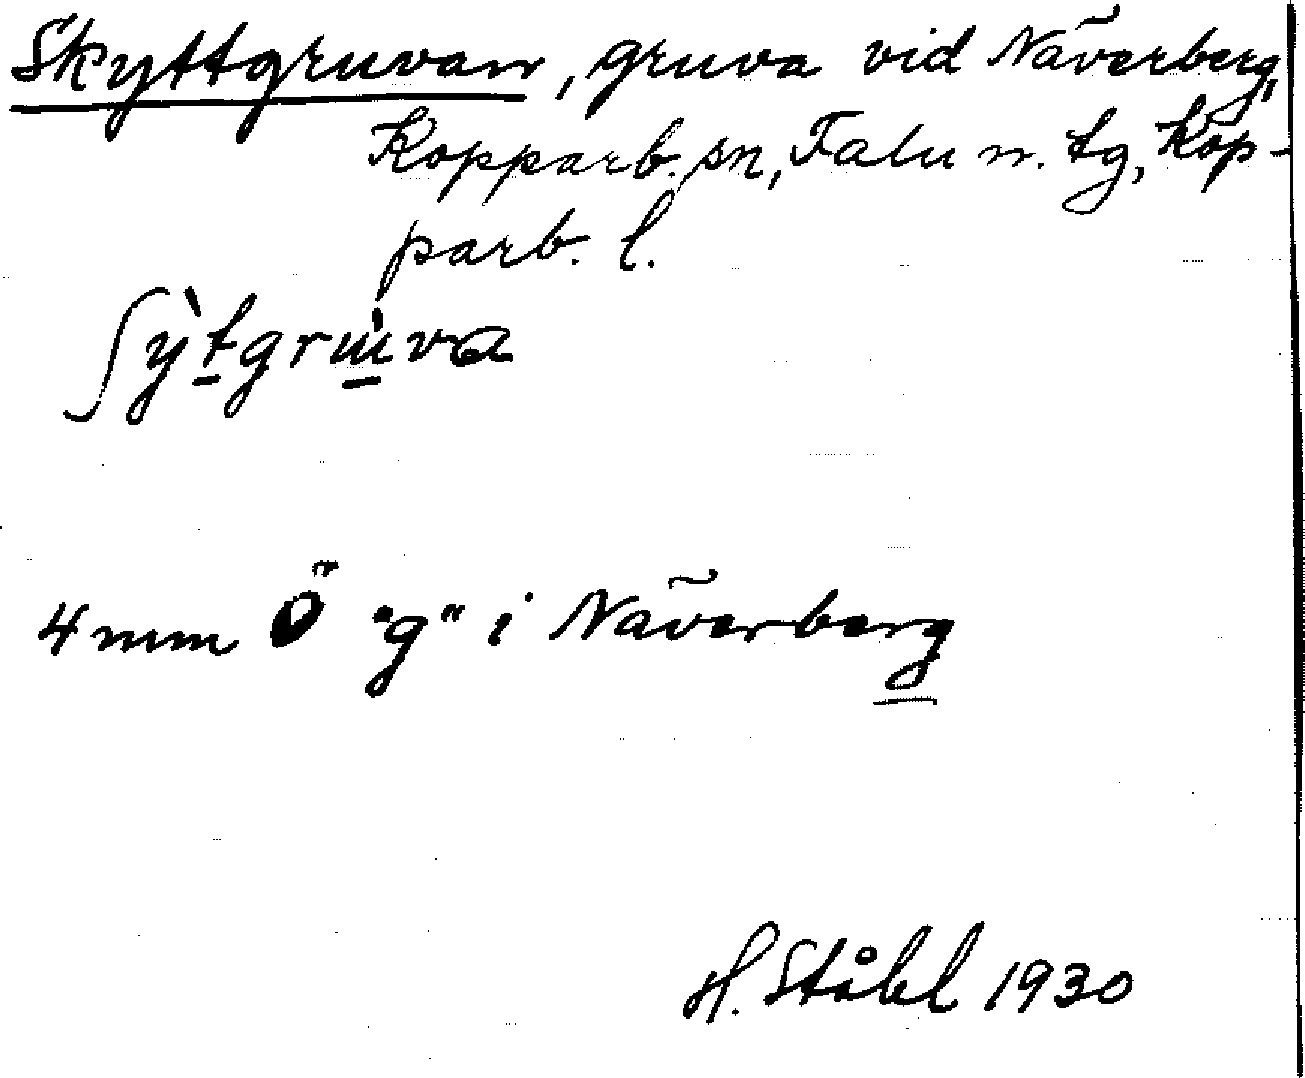 Skyttgruvan, gruva vid Näverberg,
Kopparb. sn, Falu n. tg, Kop-
parb. l.
ʃỳtgrùva
4 mm Ö "g" i Näverberg
H. Ståhl 1930